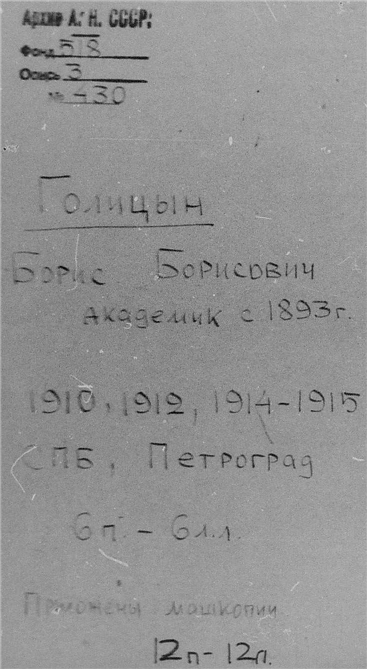 Архив А. Н. СССР:
Фонд 518
Опись 3
№ 430
Голицын
Борис Борисович
академик с 1893 г.
1910, 1912, 1914-1915
СПБ, Петроград
6 п. - 6 л.л.
Приложены машкопии
12п- 12л.